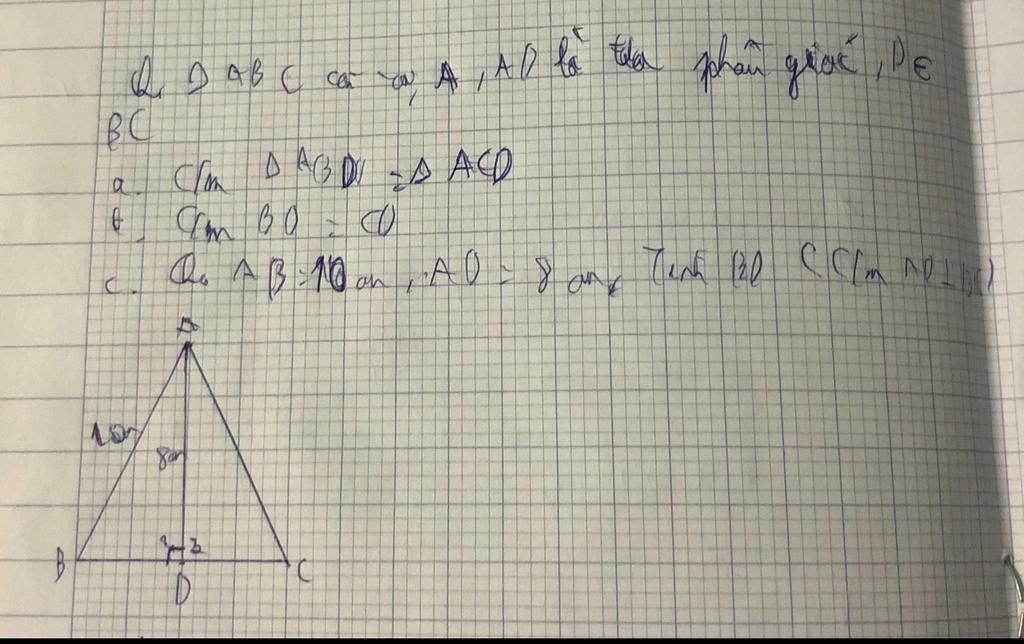 Δ ABC cân tại A, AD là tia phân giác, D ∈
BC
a. C/m Δ ABD = Δ ACD
b. C/m BD = CD
c. AB = 10 cm, AD = 8 cm, Tính BD (C/m AD ⊥ BC)
A
10
8cm
1 2
B
C
D